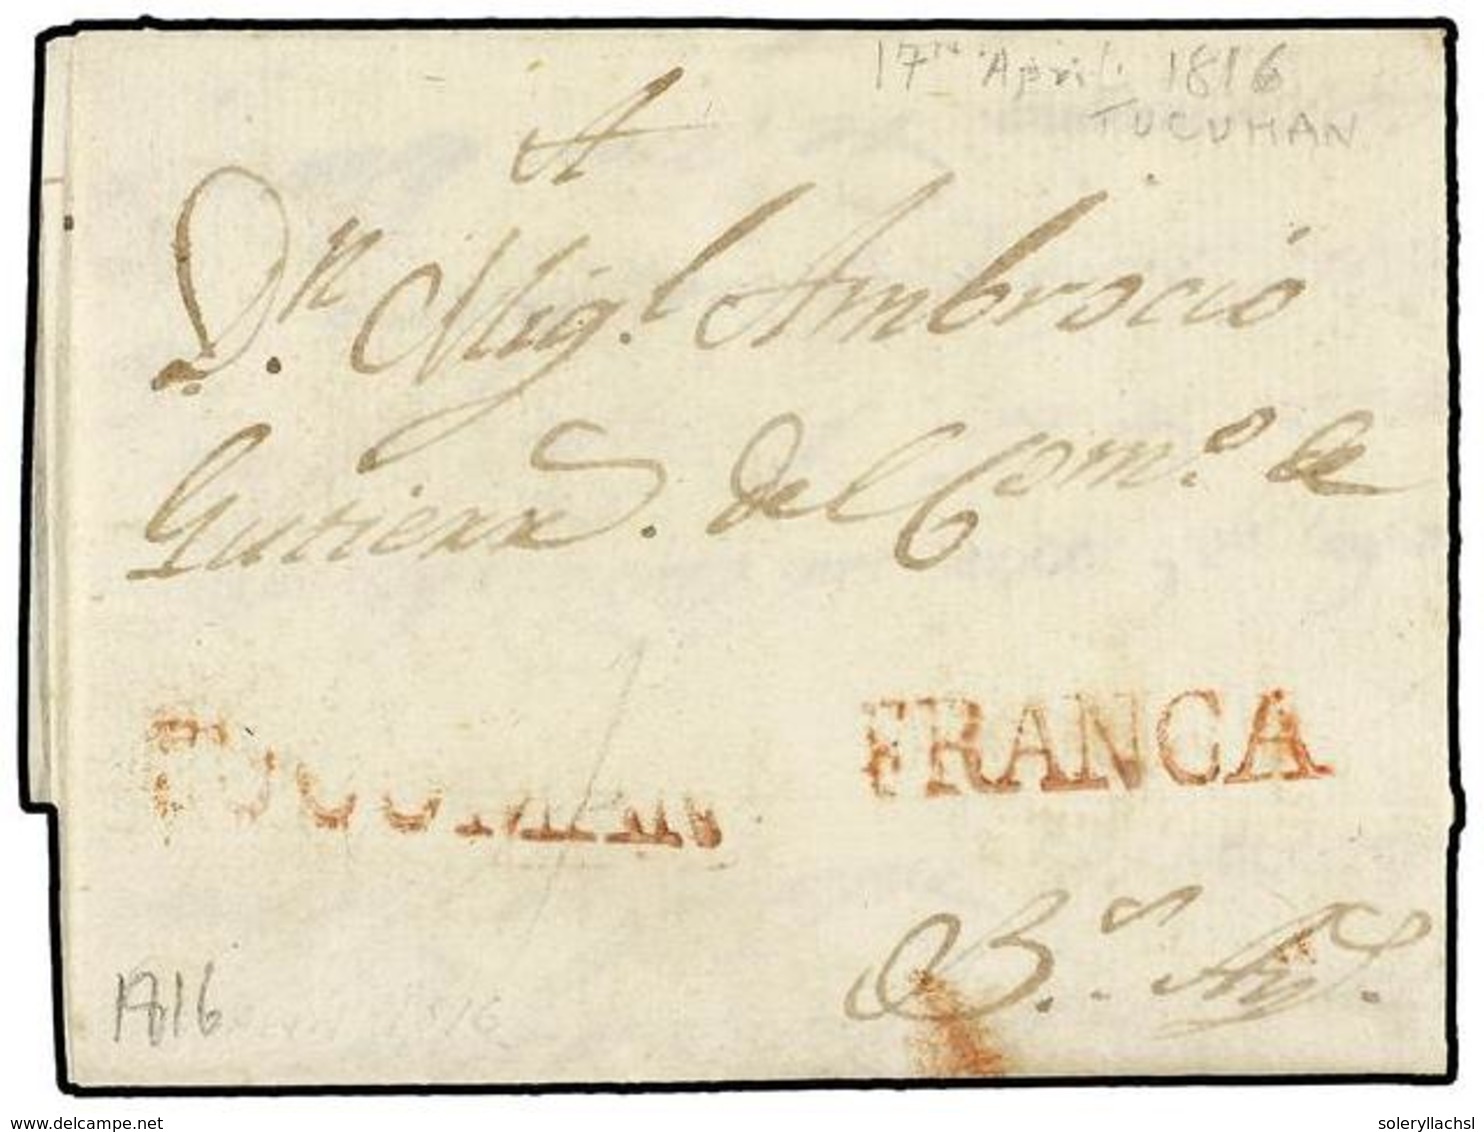 17th April 1816
TUCUMAN
A
Dn. Migl. Ambrocio
Gutierrs. del Como. de
TUCUMAN
FRANCA
Bs. Ays.
1816
www.delcampe.net
soleryllachsl